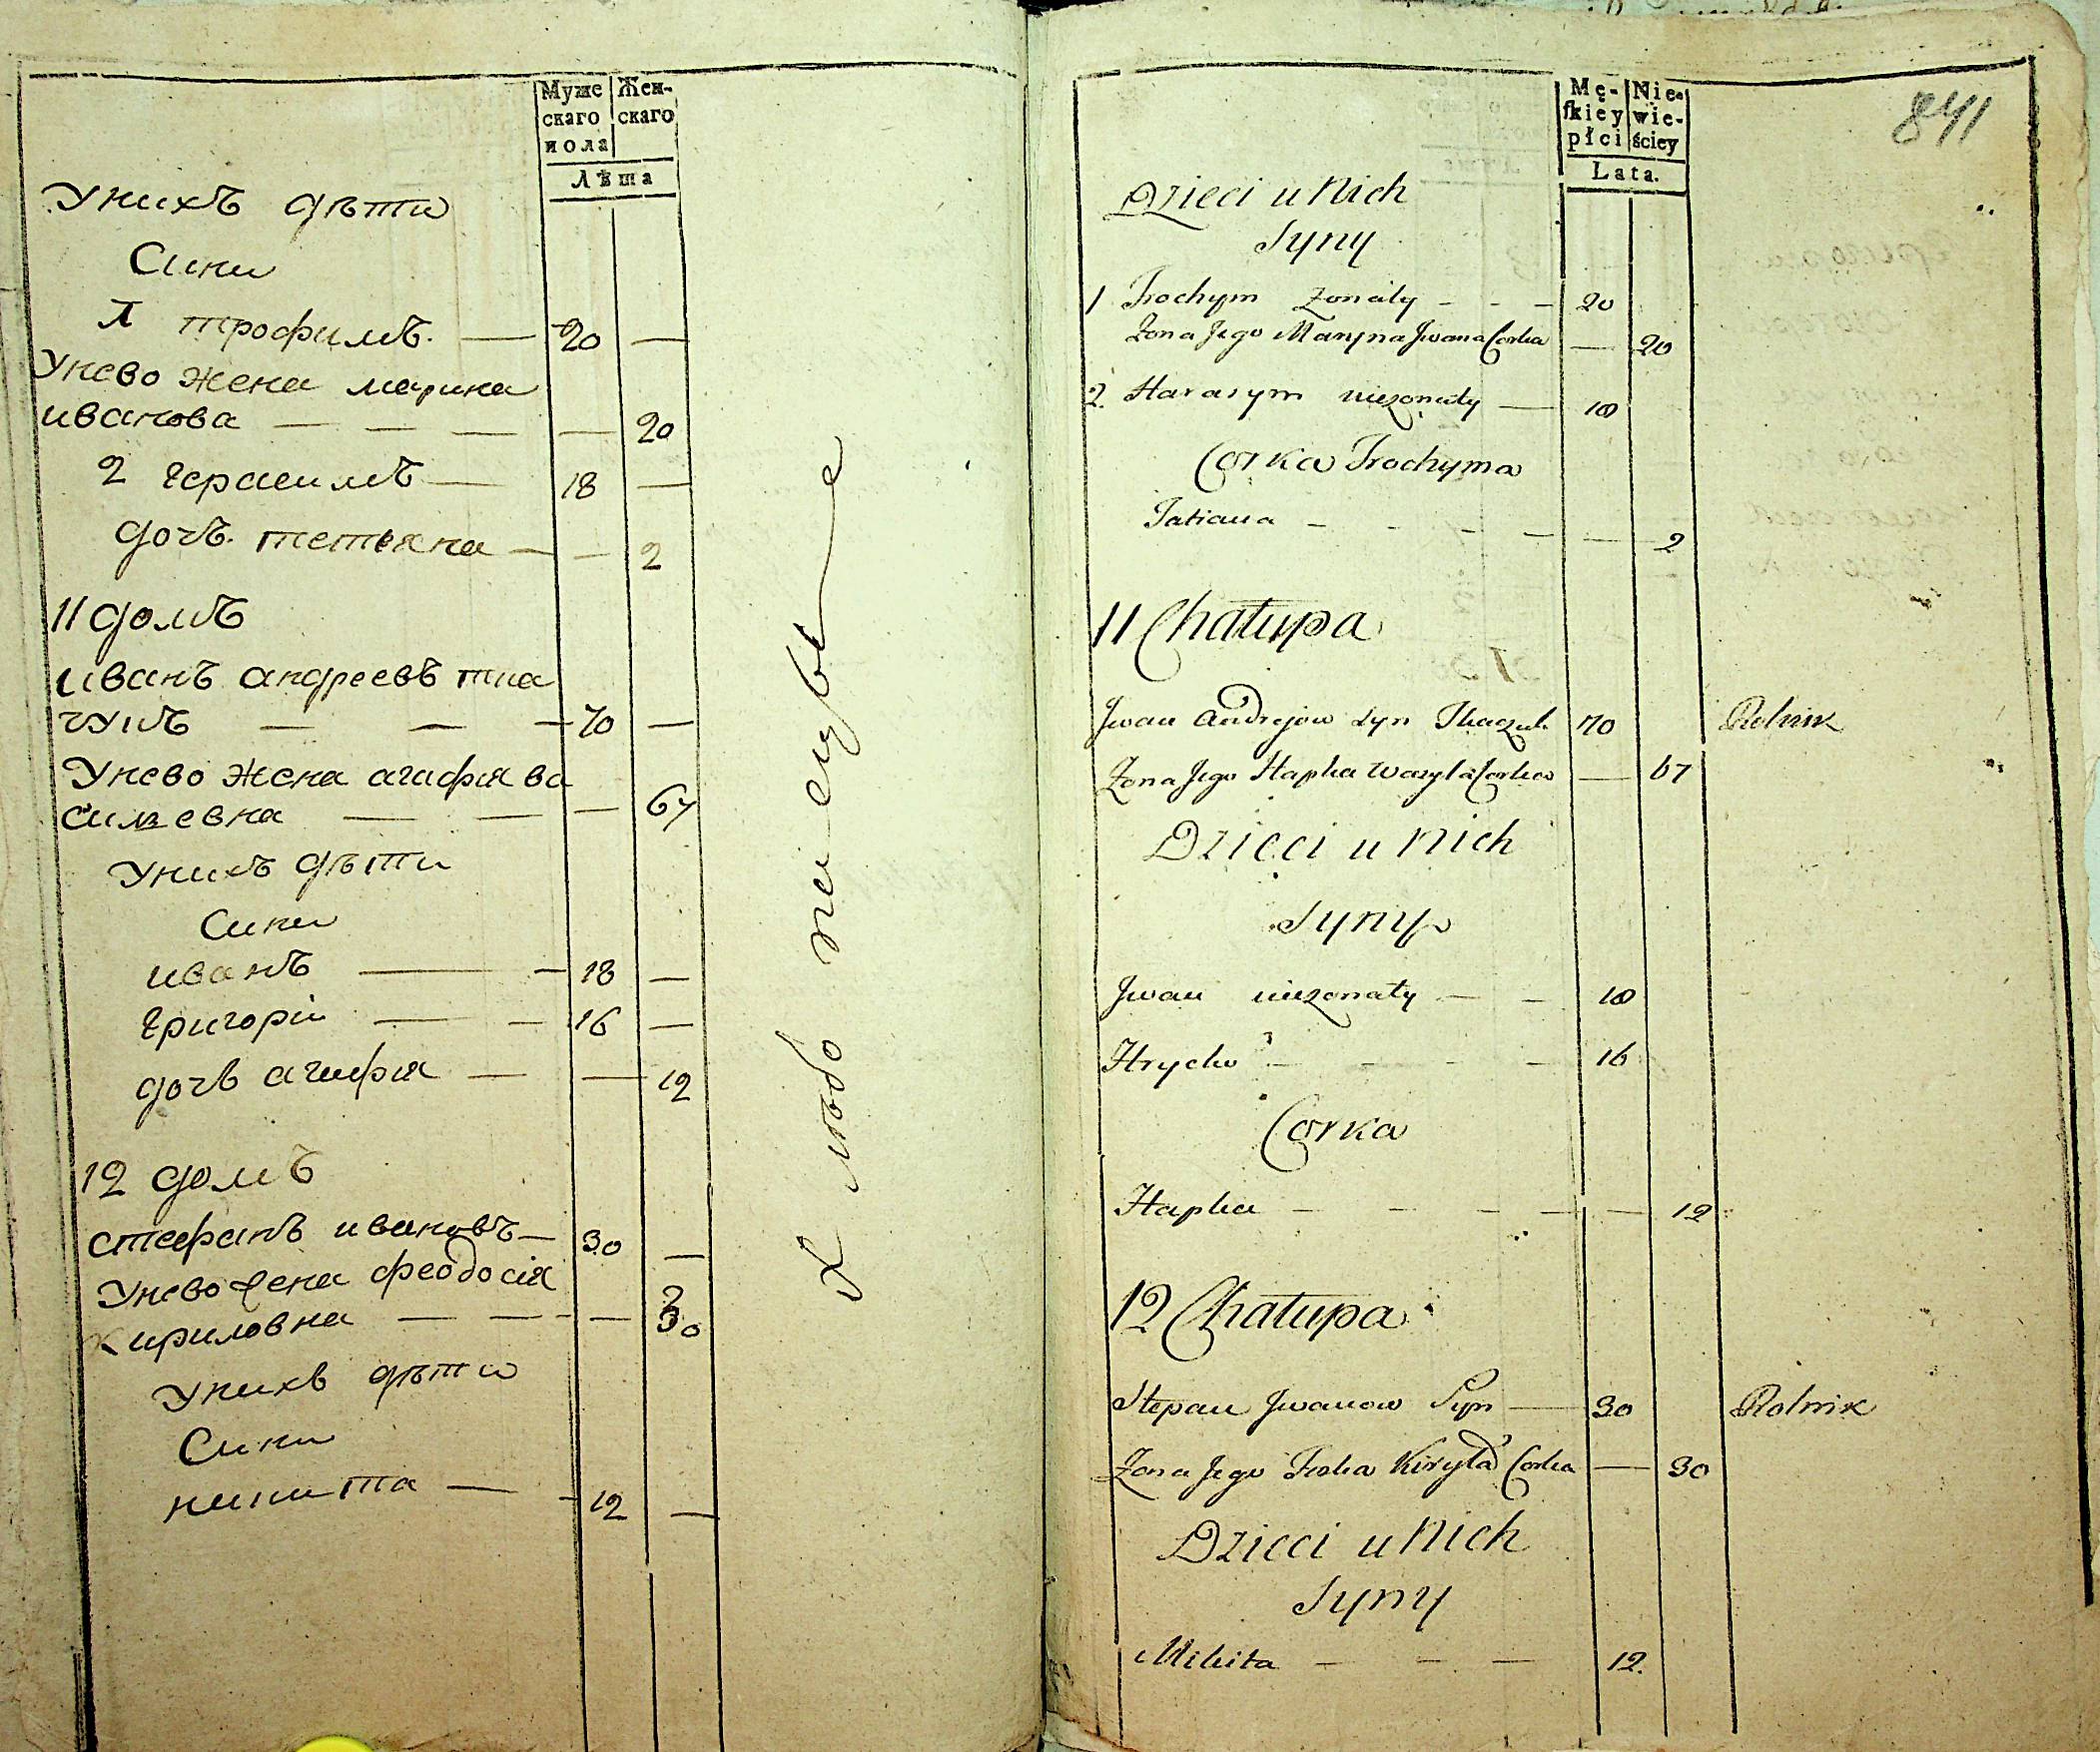 Муже
скаго
пола
Жен-
скаго
Лѣта
Унихъ дѣти
Сини
1 трофимъ. — 20 —
Унево жена марина
иванова — — — — 20
2 герасимъ — 18 —
дочъ. тетьяна — — 2
11 домъ
иванъ андреевъ тка
чукъ — — — 70 —
Унево жена агафия ва
силевна — — — 67
Унихъ дѣти
Сини
иванъ — — 18 —
григорiи — — 16 —
дочь агафия — — 12
12 домъ
стефанъ ивановъ — 30 —
Унево жена феодосiя
кириловна — — - — 30
Унихъ дѣти
Сини
никита — - 12 —
Mę-
skiey
płci
Nie-
wie-
ściey
Lata.
841
Dzieci u Nich
Syny
1 Trochym Zonaty - - - 20
Zona Jego Maryna Jwana Corka — 20
2. Harasym niezonaty — 18
Corka Trochyma
Tatiana - - - - — 2
11 Chałupa
Jwan Andrejow Syn Tkaczuk 70 Rolnik
Zona Jego Hapka Wasyla Corka — 67
Dzieci u Nich
Syny
Jwan niezonaty — - 18
Hrycko - - - - 16
Corka
Hapka - - - - — 12
12 Chałupa
Stepan Jwanow Syn — 30 Rolnik
Zona Jego Feska Kiryła Corka — 30
Dzieci u Nich
Syny
Mikita - - - 12.